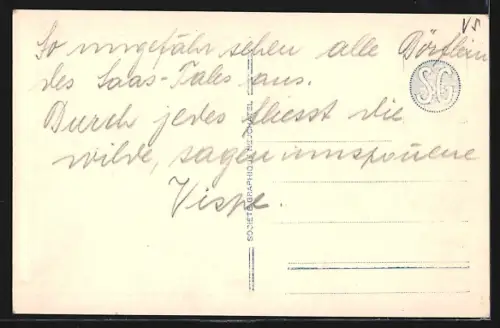 VS
So ungefähr sehen alle Dörflein
des Saas-Tales aus.
Durch jedes fliesst die
wilde, sagenumsponnene
Vispe.
SG
SOCIÉTÉ GRAPHIQUE NEUCHÂTEL